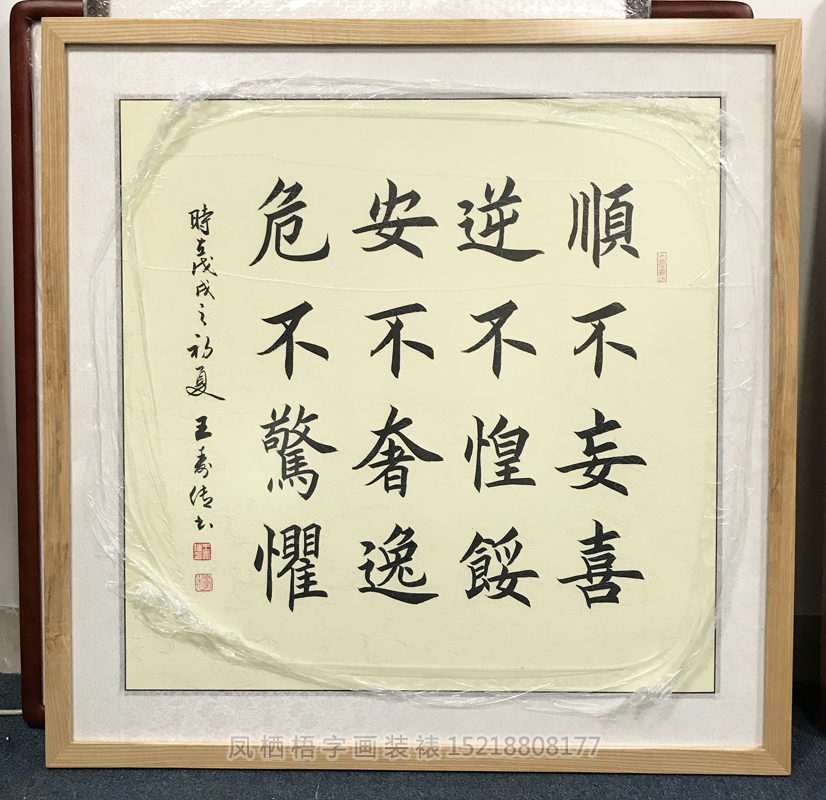 順不妄喜
逆不惶餒
安不奢逸
危不驚懼
時在戊戌之初夏 王壽倩书
凤栖梧字画装裱15218808177